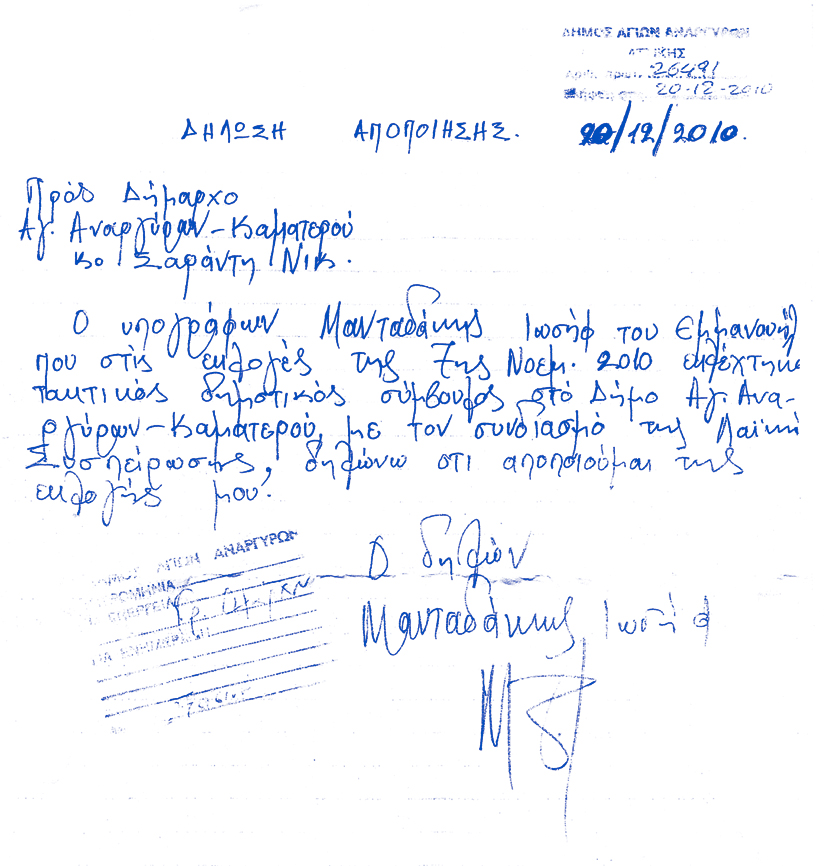 ΔΗΜΟΣ ΑΓΙΩΝ ΑΝΑΡΓΥΡΩΝ
ΑΤΤΙΚΗΣ
Αριθ. πρωτ. 26491
20-12-2010
ΔΗΛΩΣΗ ΑΠΟΠΟΙΗΣΗΣ. 20/12/2010.
Πρός Δήμαρχο
Αγ. Αναργύρων-Καματερού
κο Σαράντη Νικ.
Ο υπογράφων Μανταδάκης Ιωσήφ του Εμμανουήλ
που στίς εκλογές της 7ης Νοεμ. 2010 εκλέχτηκε
τακτικός δημοτικός σύμβουλος στο Δήμο Αγ. Ανα-
ργύρων-Καματερού, με τον συνδιασμό της Λαϊκή
Συσπείρωσης, δηλώνω οτι αποποιούμαι της
εκλογής μου.
Ο δηλών
Μανταδάκης Ιωσήφ
ΔΗΜΟΣ ΑΓΙΩΝ ΑΝΑΡΓΥΡΩΝ